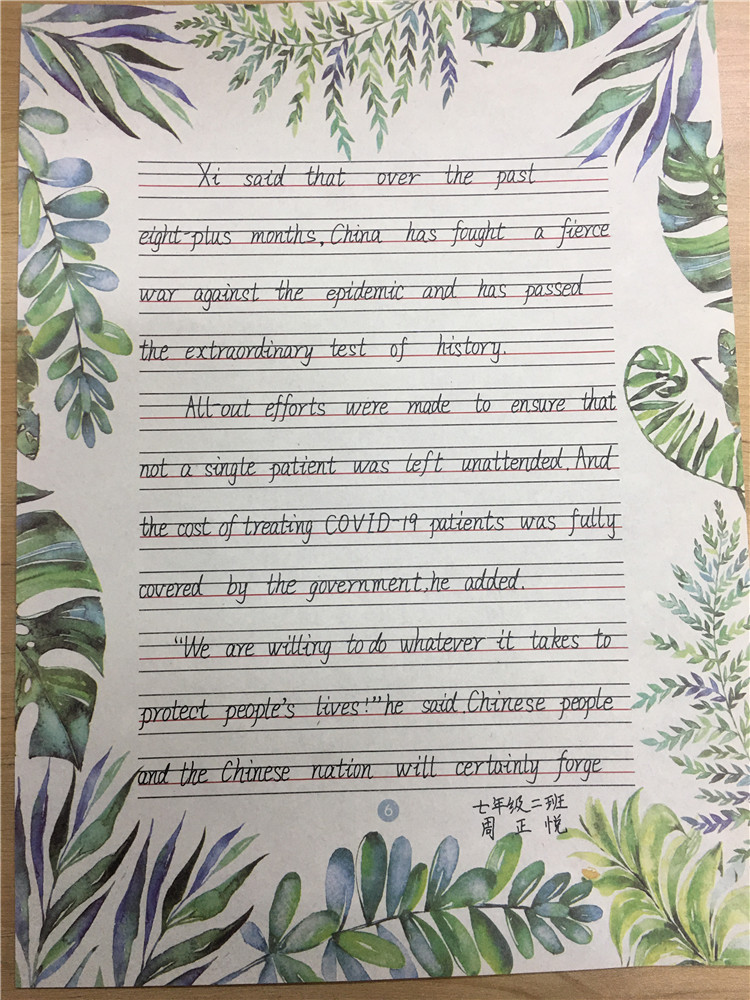 Xi said that over the past
eight-plus months, China has fought a fierce
war against the epidemic and has passed
the extraordinary test of history.
All-out efforts were made to ensure that
not a single patient was left unattended. And
the cost of treating COVID-19 patients was fully
covered by the government, he added.
"We are willing to do whatever it takes to
protect people's lives!" he said. Chinese people
and the Chinese nation will certainly forge
6
七年级二班
周正悦